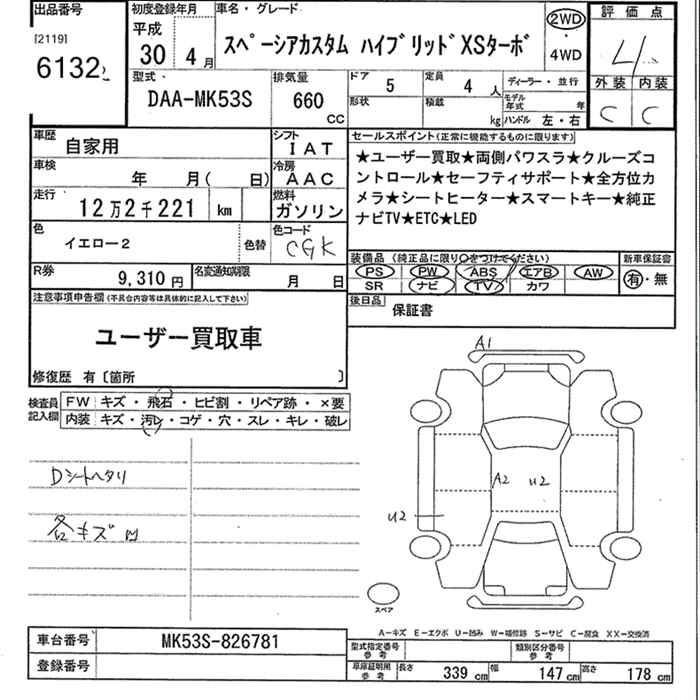 出品番号 初度登録年月 車名・グレード 評価点
[2119] 平成 2WD
6132 30 4月 スペーシアカスタム ハイブリッドXSターボ ・ 4
4WD
型式 排気量 ドア 5 定員 4人 ディーラー・並行 外装 内装
DAA-MK53S 660 CC 形状 積載 kg モデル年式 年 C C
ハンドル 左・右
車歴 自家用 シフト IAT セールスポイント(正常に機能するものに限ります)
車検 年 月( 日) 冷房 AAC ★ユーザー買取★両側パワスラ★クルーズコ
ントロール★セーフティサポート★全方位カ
走行 12万2千221 km 燃料 ガソリン メラ★シートヒーター★スマートキー★純正
ナビTV★ETC★LED
色 イエロー2 色替 色コード CGK
装備品(純正品に限り○をつけてください) 新車保証書
R券 9,310円 名変通知期限 月 日 PS PW ABS エアB AW 有・無
SR ナビ TV カワ
注意事項申告欄(不具合内容等は具体的に記入して下さい) 後日品 保証書
ユーザー買取車
修復歴 有〔箇所 〕
検査員記入欄 FW キズ・飛石・ヒビ割・リペア跡・×要
内装 キズ・汚レ・コゲ・穴・スレ・キレ・破レ
A1
Dシートヘタリ
A2 U2
U2
各キズ凹
スペア
A-キズ E-エクボ U-凹み W-補修跡 S-サビ C-腐食 XX-交換済
車台番号 MK53S-826781 型式指定番号 参考 類別区分番号 参考
登録番号 車庫証明用 参考 長さ 339cm 幅 147cm 高さ 178cm